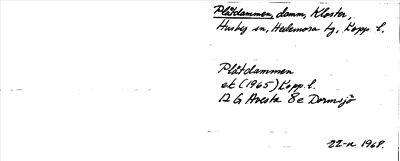 Plåtdammen, damm, Kloster,
Husby sn, Hedemora tg, Kopp. l.
Plåtdammen
ek (1965) Kopp. l.
12 G Avesta 8e Dormsjö
22-a 1968.